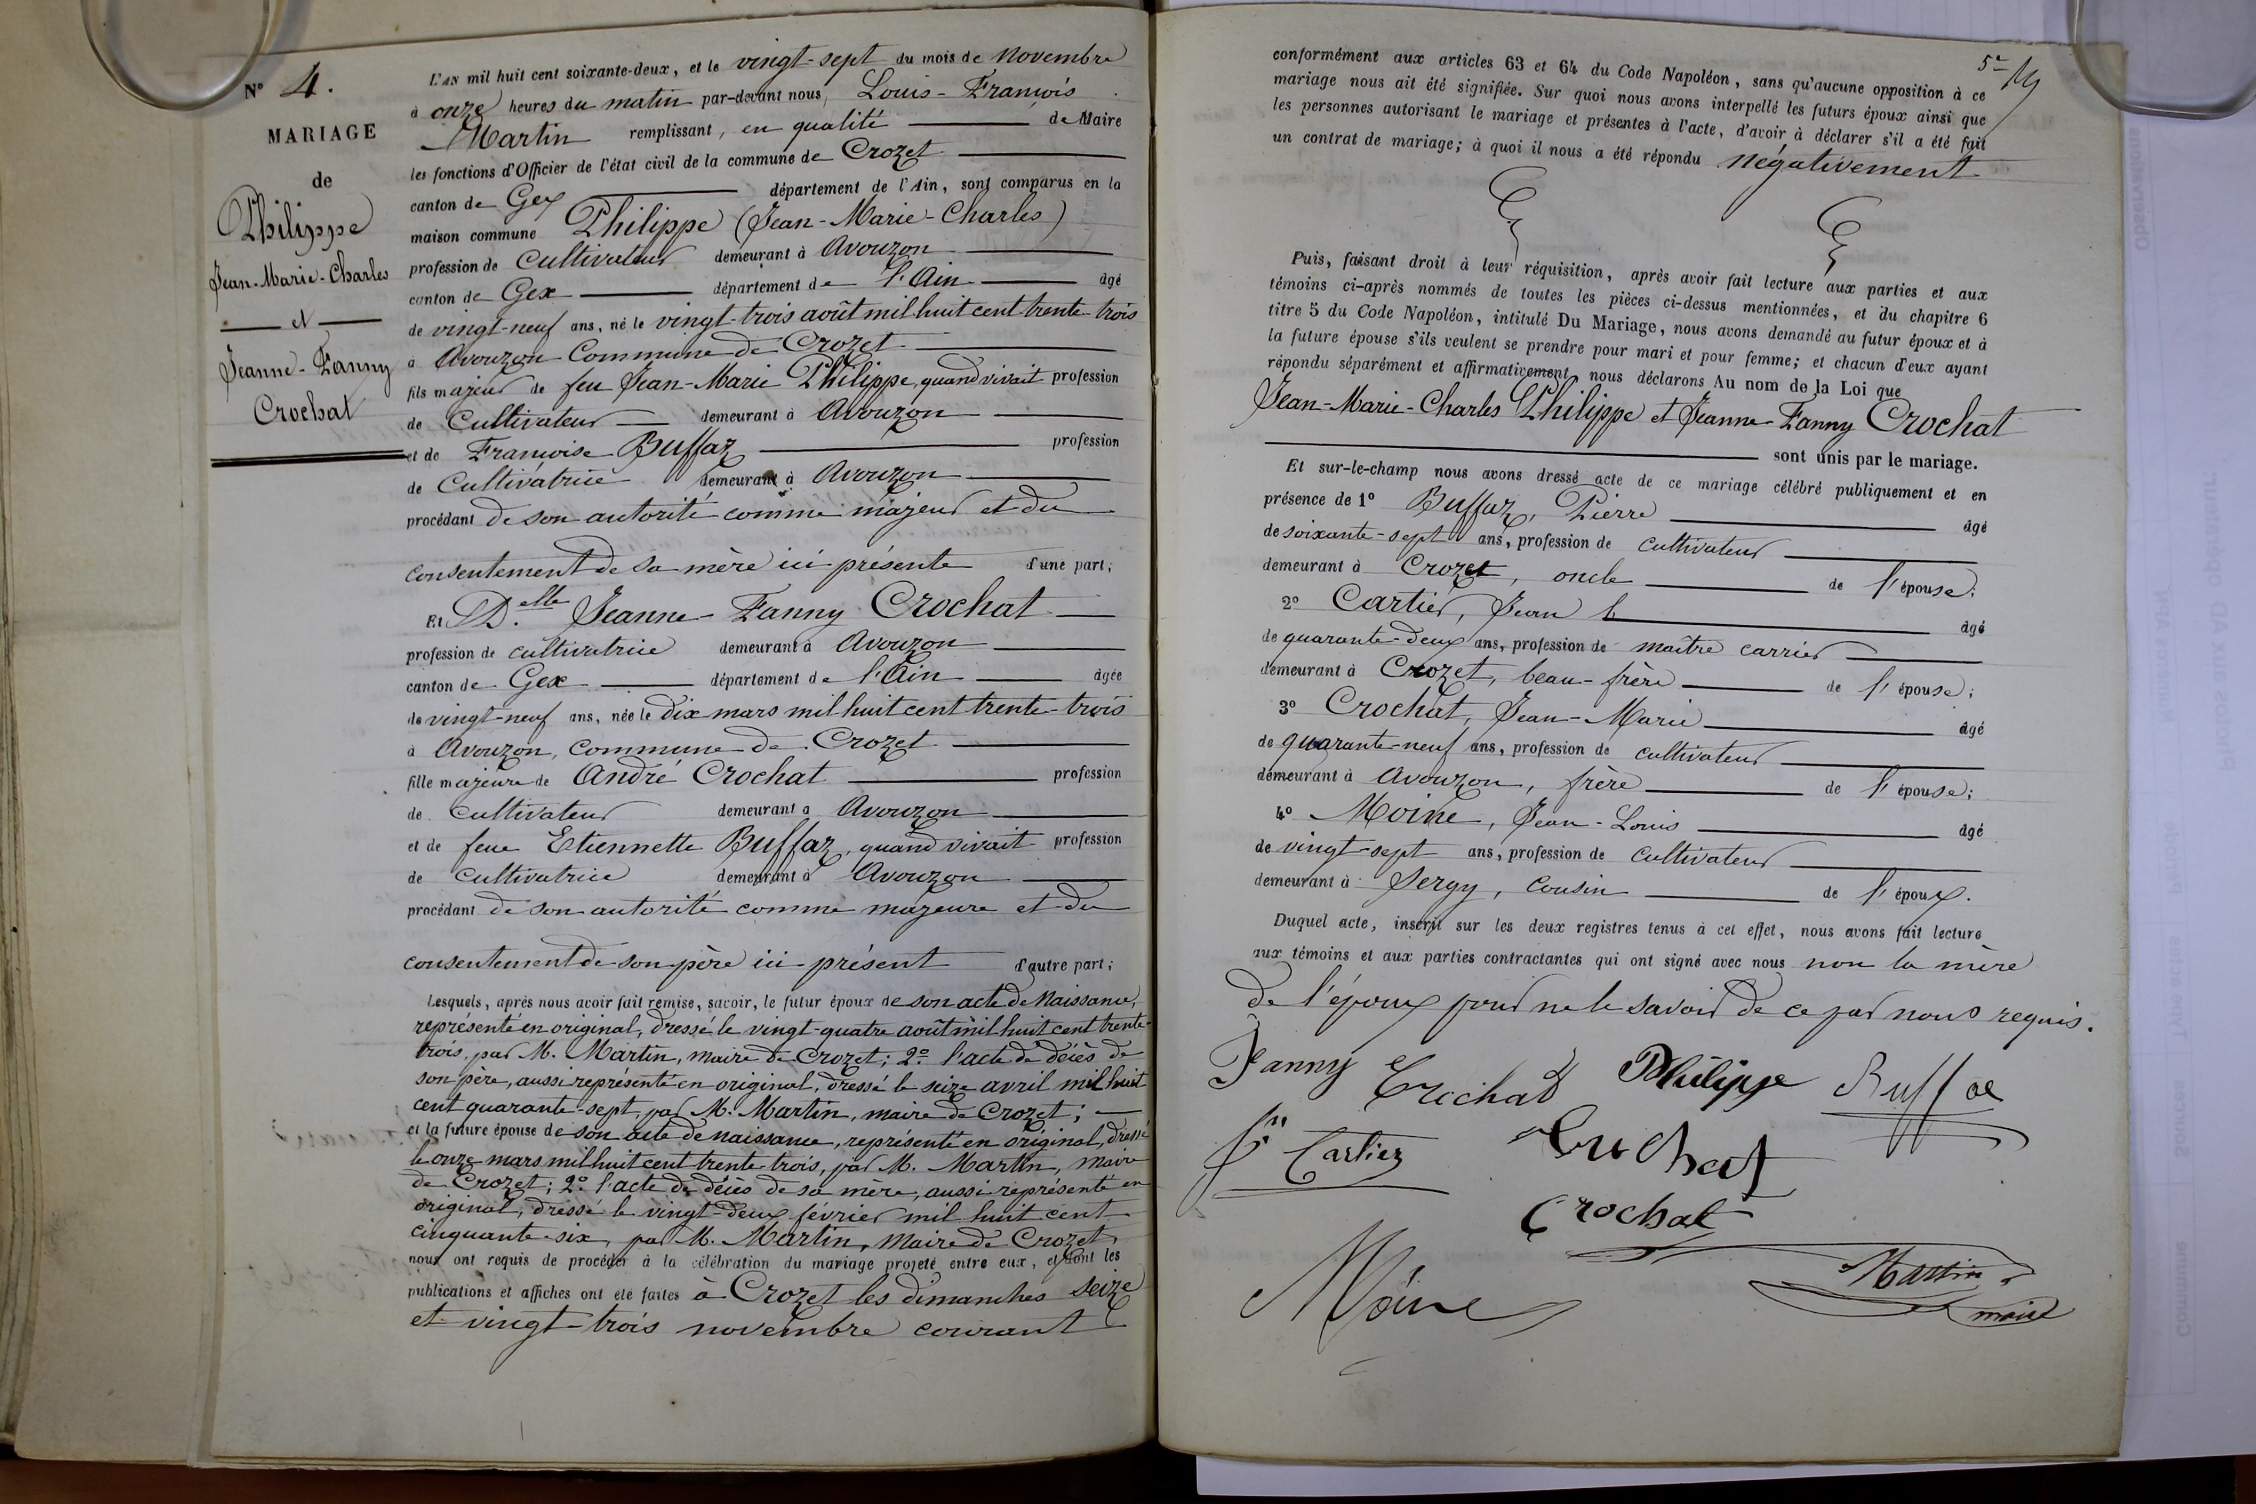 N° 4.
MARIAGE
de
Philippe
Jean-Marie-Charles
et
Jeanne-Fanny
Crochat
L'AN mil huit cent soixante-deux, et le vingt-sept du mois de Novembre
à onze heures du matin par-devant nous, Louis-François
Martin remplissant, en qualité de Maire
les fonctions d'Officier de l'état civil de la commune de Crozet
canton de Gex département de l'Ain, sont comparus en la
maison commune Philippe (Jean-Marie-Charles)
profession de Cultivateur demeurant à Avouzon
canton de Gex département de l'Ain âgé
de vingt-neuf ans, né le vingt-trois août mil huit cent trente-trois
à Avouzon Commune de Crozet
fils majeur de feu Jean-Marie Philippe, quand vivait profession
de Cultivateur demeurant à Avouzon
et de Françoise Buffaz profession
de Cultivatrice demeurant à Avouzon
procédant de son autorité comme majeur et du
consentement de sa mère ici présente d'une part;
Et D.elle Jeanne-Fanny Crochat
profession de cultivatrice demeurant à Avouzon
canton de Gex département de l'Ain âgée
de vingt-neuf ans, née le dix mars mil huit cent trente-trois
à Avouzon, Commune de Crozet
fille majeure de André Crochat profession
de cultivateur demeurant à Avouzon
et de feue Etiennette Buffaz, quand vivait profession
de cultivatrice demeurant à Avouzon
procédant de son autorité comme majeure et du
consentement de son père ici présent d'autre part;
Lesquels, après nous avoir fait remise, savoir, le futur époux de son acte de Naissance,
représenté en original, dressé le vingt-quatre août mil huit cent trente-
trois, par M. Martin, maire de Crozet; 2° l'acte de décès de
son père, aussi représenté en original, dressé le seize avril mil huit
cent quarante-sept, par M. Martin, maire de Crozet;
et la future épouse de son acte de naissance, représenté en original, dressé
le onze mars mil huit cent trente-trois, par M. Martin, maire
de Crozet; 2° l'acte de décès de sa mère, aussi représenté en
original, dressé le vingt-deux février mil huit cent
cinquante-six, par M. Martin, Maire de Crozet,
nous ont requis de procéder à la célébration du mariage projeté entre eux, et dont les
publications et affiches ont été faites à Crozet les dimanches seize
et vingt-trois novembre courant
conformément aux articles 63 et 64 du Code Napoléon, sans qu'aucune opposition à ce
mariage nous ait été signifiée. Sur quoi nous avons interpellé les futurs époux ainsi que
les personnes autorisant le mariage et présentes à l'acte, d'avoir à déclarer s'il a été fait
un contrat de mariage; à quoi il nous a été répondu négativement
Puis, faisant droit à leur réquisition, après avoir fait lecture aux parties et aux
témoins ci-après nommés de toutes les pièces ci-dessus mentionnées, et du chapitre 6
titre 5 du Code Napoléon, intitulé Du Mariage, nous avons demandé au futur époux et à
la future épouse s'ils veulent se prendre pour mari et pour femme; et chacun d'eux ayant
répondu séparément et affirmativement, nous déclarons Au nom de la Loi que
Jean-Marie-Charles Philippe et Jeanne-Fanny Crochat
sont unis par le mariage.
Et sur-le-champ nous avons dressé acte de ce mariage célébré publiquement et en
présence de 1° Buffaz, Pierre âgé
de soixante-sept ans, profession de cultivateur
demeurant à Crozet, oncle de l'épouse;
2° Cartier, Jean âgé
de quarante-deux ans, profession de maître carrier
demeurant à Crozet, beau-frère de l'épouse;
3° Crochat, Jean-Marie âgé
de quarante-neuf ans, profession de cultivateur
demeurant à Avouzon, frère de l'épouse;
4° Moine, Jean-Louis âgé
de vingt-sept ans, profession de cultivateur
demeurant à Sergy, cousin de l'époux.
Duquel acte, inscrit sur les deux registres tenus à cet effet, nous avons fait lecture
aux témoins et aux parties contractantes qui ont signé avec nous non la mère
de l'époux pour ne le savoir de ce par nous requis.
Fanny Crochat Philippe Buffaz
Cartier Crochat
Crochat
Moine Martin
maire